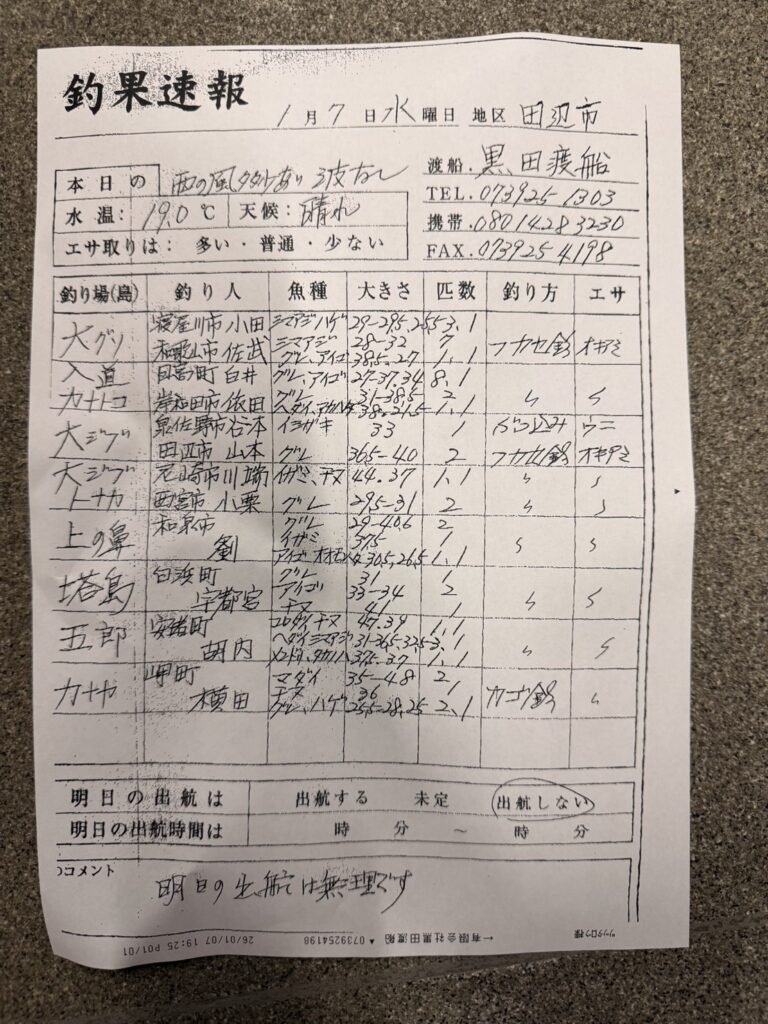 釣果速報
1月7日水曜日 地区 田辺市
本日の 西の風多少あり 波なし
渡船.黒田渡船
水温: 19.0℃ 天候: 晴れ
TEL.073925 1303
携帯.080 1428 3230
エサ取りは: 多い・普通・少ない
FAX.073925 4198
釣り場(島) 釣り人 魚種 大きさ 匹数 釣り方 エサ
大グリ 寝屋川市 小田 シマアジ、ハゲ 29-29.5、25.5 3、1
和歌山市 佐武 シマアジ 28-32 7 フカセ釣 オキアミ
グレ、アイゴ 38.5、27 1、1
入道 日高町 白井 グレ、アイゴ 27-37、34 8、1
カナトコ 岸和田市 依田 グレ 31-38.5 2 〃 〃
ヘダイ、 38、21.5 1、1
大ジブ 泉佐野市 谷本 イシガキ 33 1 ウニ
田辺市 山本 グレ 36.5-40 2 フカセ釣 オキアミ
大ジブ 尼崎市 川端 イガミ、チヌ 44、37 1、1 〃 〃
トナカ 西宮市 小栗 グレ 29.5-31 2 〃 〃
上の鼻 和泉市 劉 グレ 29-40.6 2
イガミ 37.5 1 〃 〃
アイゴ 30.5、26.5 1、1
塔島 白浜町 宇都宮 グレ 31 1
アイゴ 33-34 2 〃 〃
チヌ 41 1
五郎 胡内 コロダイ、チヌ 47、39 1、1
ヘダイ、シマアジ 31-36.5、32.5 3、1 〃 〃
タカノハ 37.5-37 1、1
カナヤ 岬町 横田 マダイ 35-48 2
チヌ 36 1 カゴ釣 〃
グレ、ハゲ 25.5-28、25 2、1
明日の出航は 出航する 未定 出航しない
明日の出航時間は 時 分 ～ 時 分
のコメント
明日の出航は無理です
26/01/07 19:25 P01/01 0739254198 ▲ ←有限会社黒田渡船